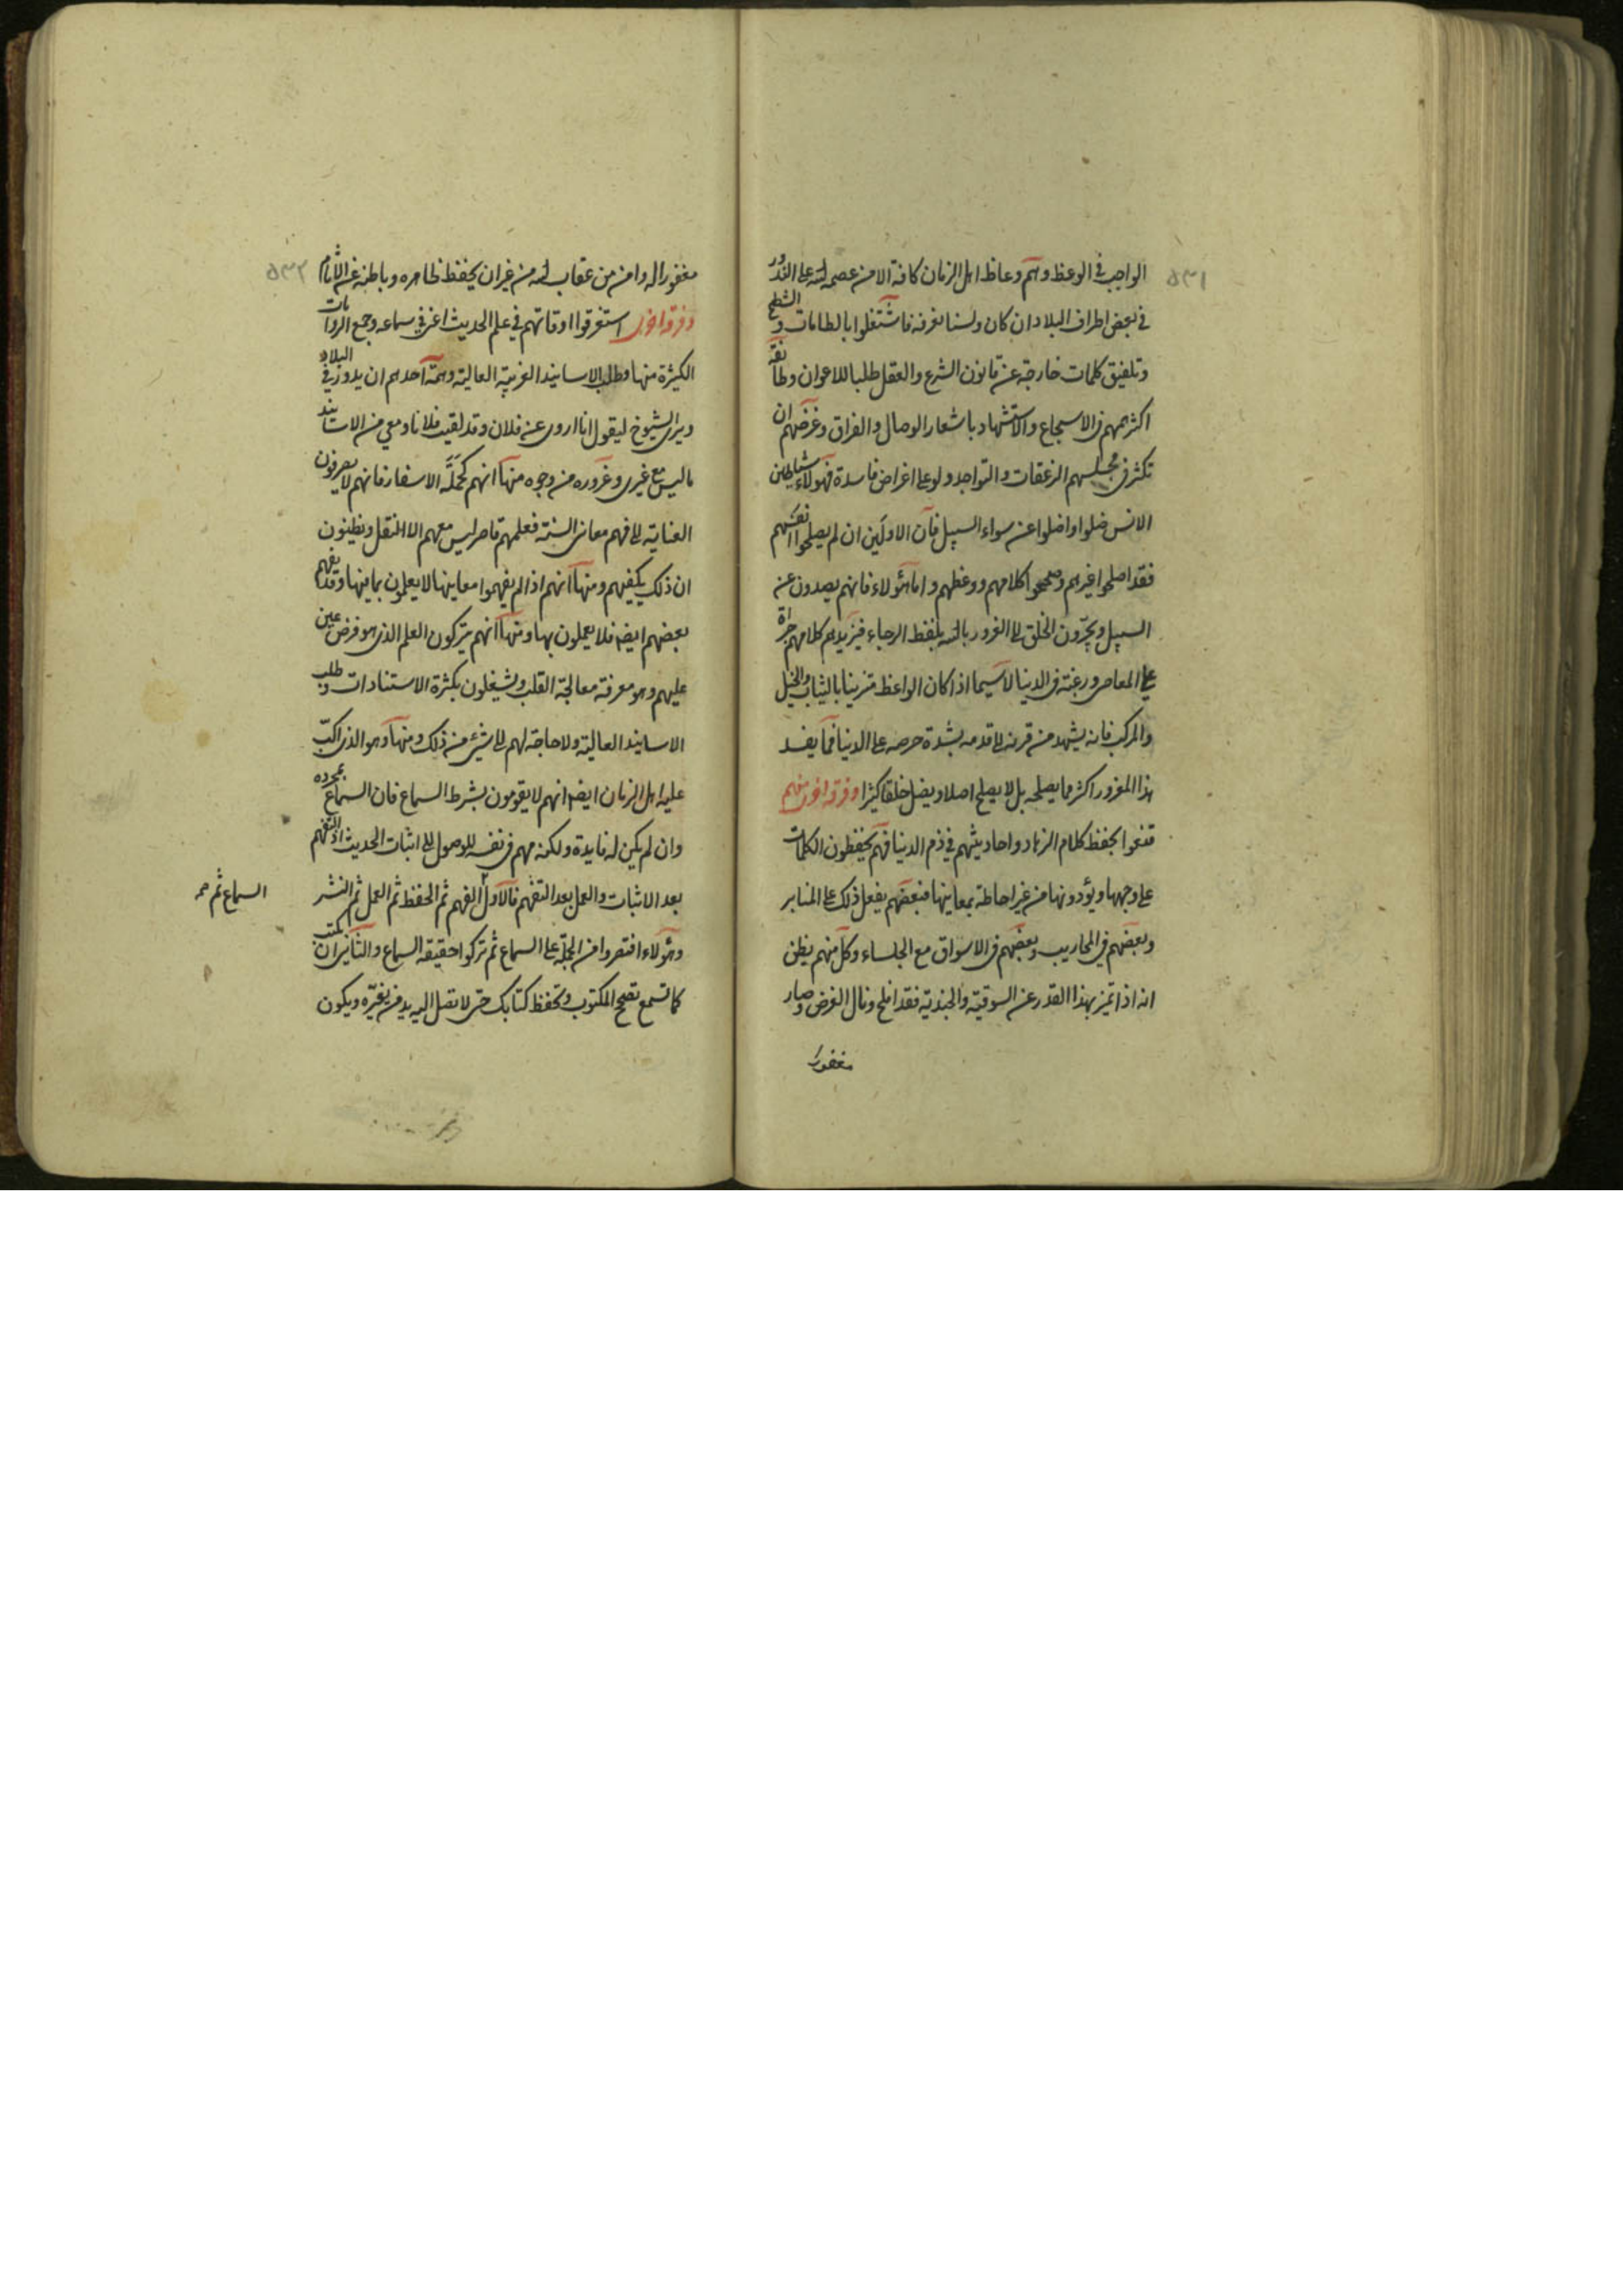 ٥٣١
الواجب في الوعظ وهم وعاظ اهل الزمان كافة الا من عصمه الله على الندور
في بعض اطراف البلاد ان كان ولسنا نعرفه فاشتغلوا بالطامات والشطح
وتلفيق كلمات خارجة عن قانون الشرع والعقل طلبا للاعوان وطائفة
اكثر همهم في الاسجاع والاستشهاد باشعار الوصال والفراق وغرضهم ان
تكثر في مجلسهم الزعقات والتواجد ولو على اغراض فاسدة فهولاء شياطين
الانس ضلوا واضلوا عن سواء السبيل فان الاولين ان لم يصلحوا انفسهم
فقد اصلحوا غيرهم وصححوا كلامهم ووعظهم واما هؤلاء فانهم يصدون عن
السبيل ويجرّون الخلق الى الغرور بالله بلفظ الرجاء فيزيدهم كلامهم جرأة
على المعاصي ورغبة في الدنيا لا سيما اذا كان الواعظ متزينا بالثياب والخيل
والمركب فانه يشهد من قرنه الى قدمه بشدة حرصه على الدنيا فما يفسد
هذا المغرور اكثر مما يصلحه بل لا يصلح اصلا ويضل خلقا كثيرا وفرقة اخرى منهم
قنعوا بحفظ كلام الزهاد واحاديثهم في ذم الدنيا فهم يحفظون الكلمات
على وجهها ويؤدونها من غير احاطة بمعانيها فبعضهم يفعل ذلك على المنابر
وبعضهم في المحاريب وبعضهم في الاسواق مع الجلساء وكل منهم يظن
انه اذا تميز بهذا القدر عن السوقية والجندية فقد افلح ونال الغرض وصار
مغفورا
٥٣٢
مغفورا له وامن من عقاب الله من غير ان يحفظ ظاهره وباطنه عن الآثام
وفرقة اخرى استغرقوا اوقاتهم في علم الحديث اعني في سماعه وجمع الروايات
الكثيرة منها وطلب الاسانيد الغريبة العالية وهمة احدهم ان يدور في البلاد
ويرى الشيوخ ليقول انا اروى عن فلان وقد لقيت فلانا ومعي من الاسانيد
ما ليس مع غيرى وغروره من وجوه منها انهم كحملة الاسفار فانهم لا يصرفون
العناية الى فهم معاني السنة فعلمهم قاصر ليس معهم الا النقل ويظنون
ان ذلك يكفيهم ومنها انهم اذا لم يفهموا معانيها لا يعلمون بما فيها وقد يفهم
بعضهم ايضا فلا يعملون بها ومنها انهم يتركون العلم الذى هو فرض عين
عليهم وهو معرفة معالجة القلب ويشغلون بكثرة الاستنادات وطلب
الاسانيد العالية ولا حاجة لهم الى شئ من ذلك ومنها وهو الذى اكبّ
عليه اهل الزمان ايضا انهم لا يقومون بشرط السماع فان السماع بمجرده
وان لم يكن له فايدة ولكنه مهم في نفسه للوصول الى اثبات الحديث اذ التفهم
بعد الاثبات والعمل بعد التفهم فالاول الفهم ثم الحفظ ثم العمل ثم النشر
السماع ثم صح
وهؤلاء اقتصروا من الجملة على السماع ثم تركوا حقيقة السماع والثاني ان تكتب
كما تسمع تصحح المكتوب وتحفظ كتابك حتى لا تصل اليه يد من يغيّره ويكون